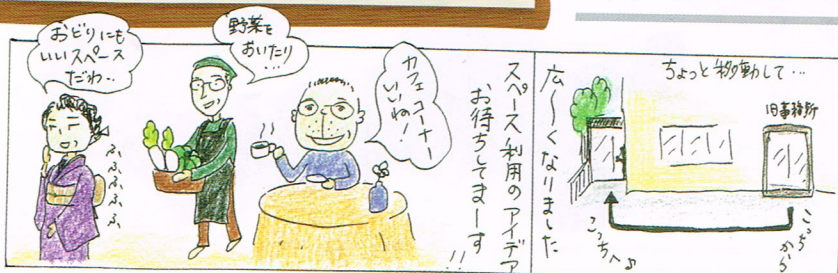 ちょっと移動して…
旧事務所
こっちから
こっちへ♪
広〜くなりました
スペース利用のアイデア
お待ちしてまーす!!
カフェコーナー
いいね!
野菜を
おいたり
…
おどりにも
いいスペース
だわ…
ふふふふふ